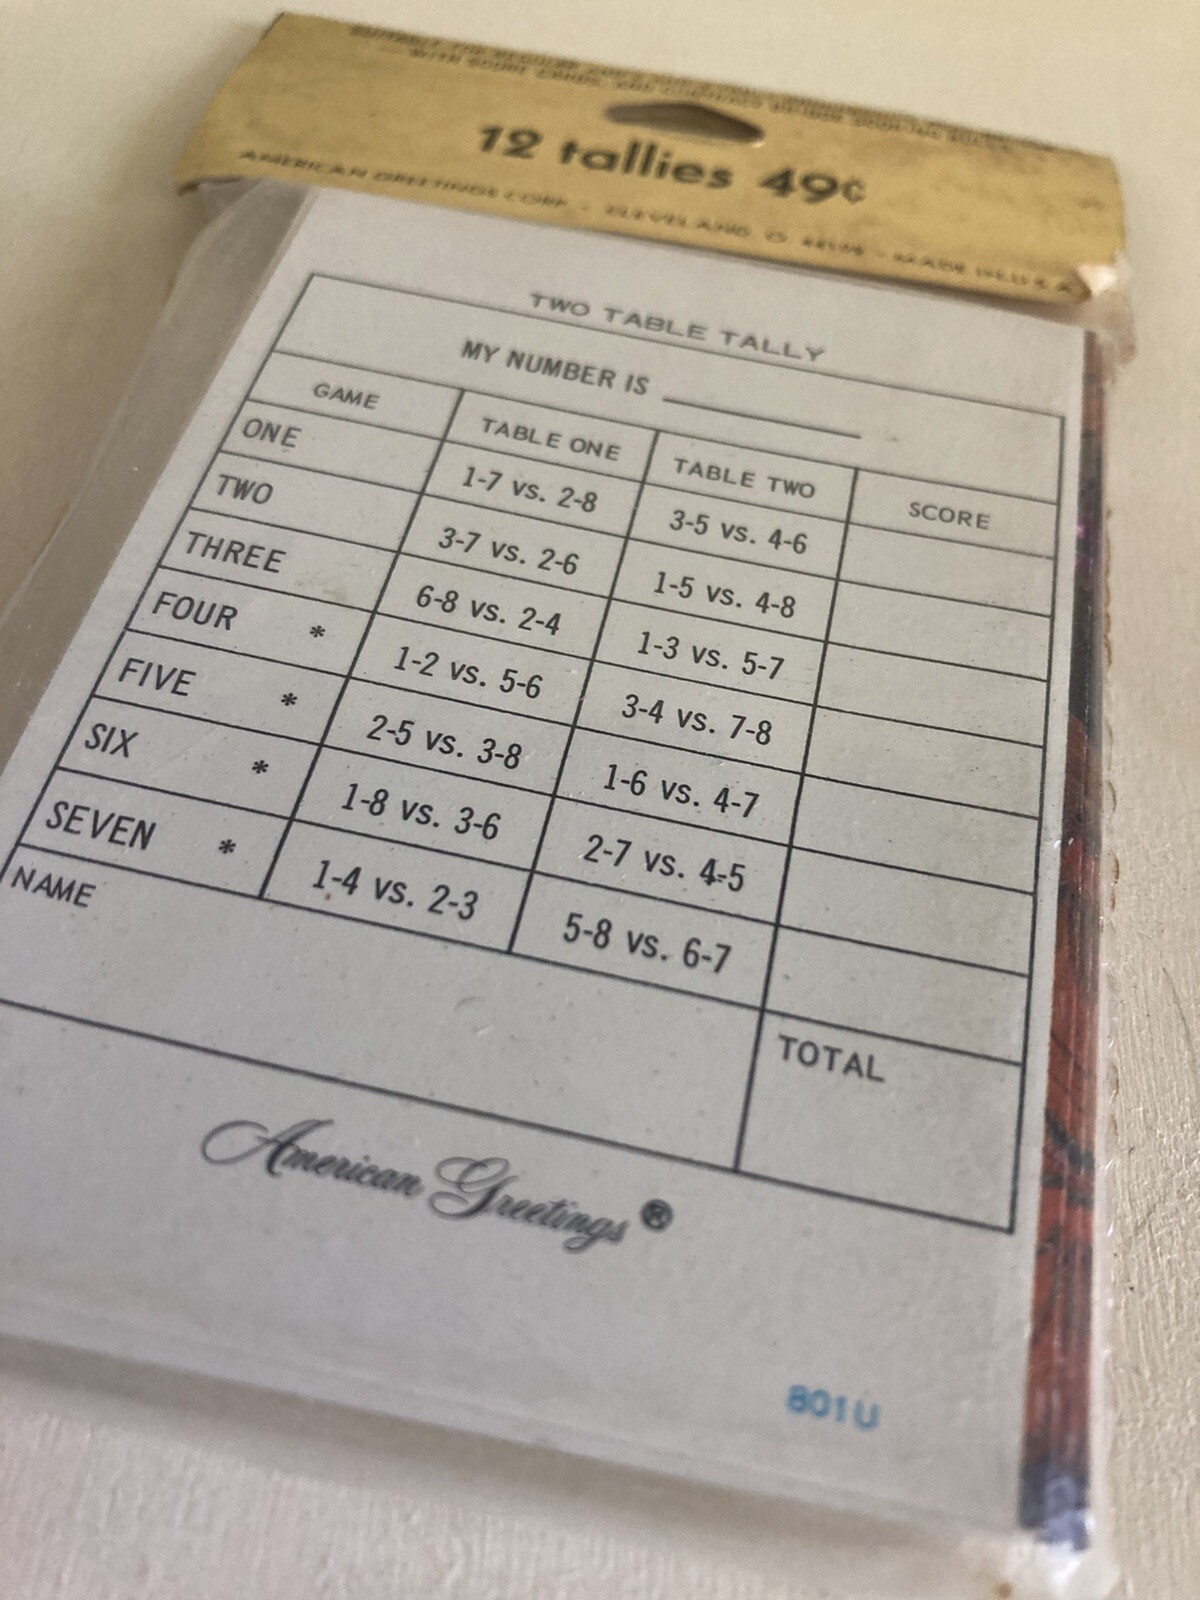 WITH SCORE CARDS
12 tallies 49¢
AMERICAN GREETINGS CORP. - CLEVELAND, O. 44109 - MADE IN U.S.A.
TWO TABLE TALLY
MY NUMBER IS
GAME TABLE ONE TABLE TWO SCORE
ONE 1-7 vs. 2-8 3-5 vs. 4-6
TWO 3-7 vs. 2-6 1-5 vs. 4-8
THREE 6-8 vs. 2-4 1-3 vs. 5-7
FOUR * 1-2 vs. 5-6 3-4 vs. 7-8
FIVE * 2-5 vs. 3-8 1-6 vs. 4-7
SIX * 1-8 vs. 3-6 2-7 vs. 4-5
SEVEN * 1-4 vs. 2-3 5-8 vs. 6-7
NAME TOTAL
American Greetings®
801U